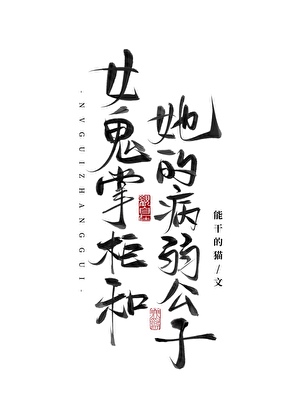 女鬼掌柜和
她的病弱公子
·NVGUIZHANGGUI·
能干的猫/文